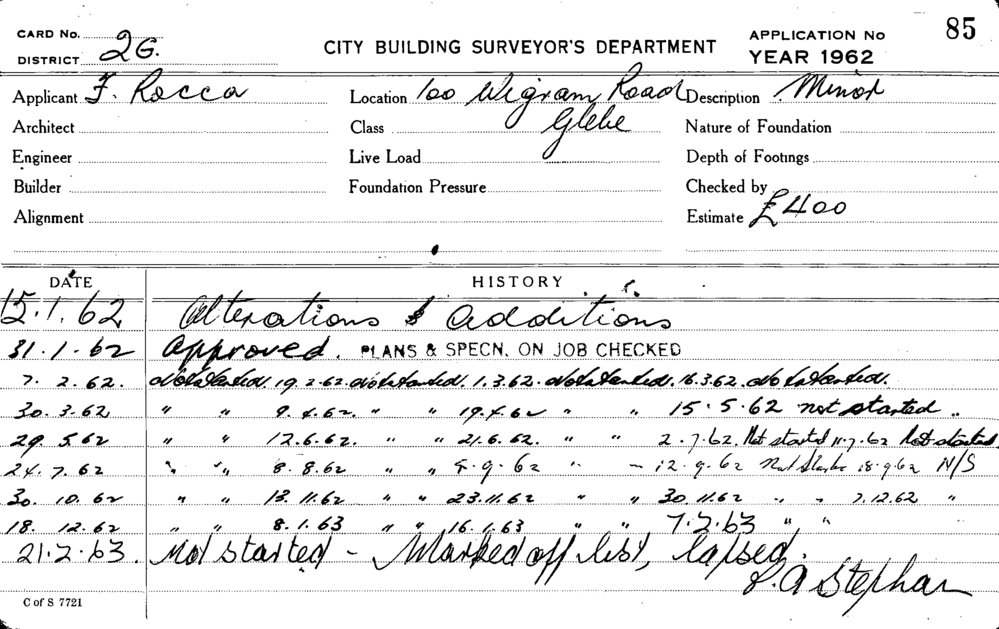 CARD No. 2G. CITY BUILDING SURVEYOR'S DEPARTMENT APPLICATION No 85
DISTRICT YEAR 1962
Applicant F. Rocca Location 100 Wigram Road Description Minor
Architect Class Glebe Nature of Foundation
Engineer Live Load Depth of Footings
Builder Foundation Pressure Checked by
Alignment Estimate £400
DATE HISTORY
15.1.62 Alterations & additions
31.1.62 Approved. PLANS & SPECN. ON JOB CHECKED
7.2.62. Not started. 19.2.62. Not started. 1.3.62. Not started. 16.3.62. Not started.
30.3.62 " " 9.4.62. " " 19.4.62 " " 15.5.62 not started..
29.5.62 " " 12.6.62. " " 21.6.62. " " 2.7.62. Not started 11.7.62 Not started.
24.7.62 " " 8.8.62 " " 5.9.62 " - 12.9.62 Not started 18.9.62 N/S
30.10.62 " " 13.11.62 " " 23.11.62 " " 30.11.62 " " 7.12.62 "
18.12.62 " " 8.1.63 " " 16.1.63 " " 7.2.63 " "
21.2.63. Not started - Marked off list, lapsed.
S.A Stephan
C of S 7721